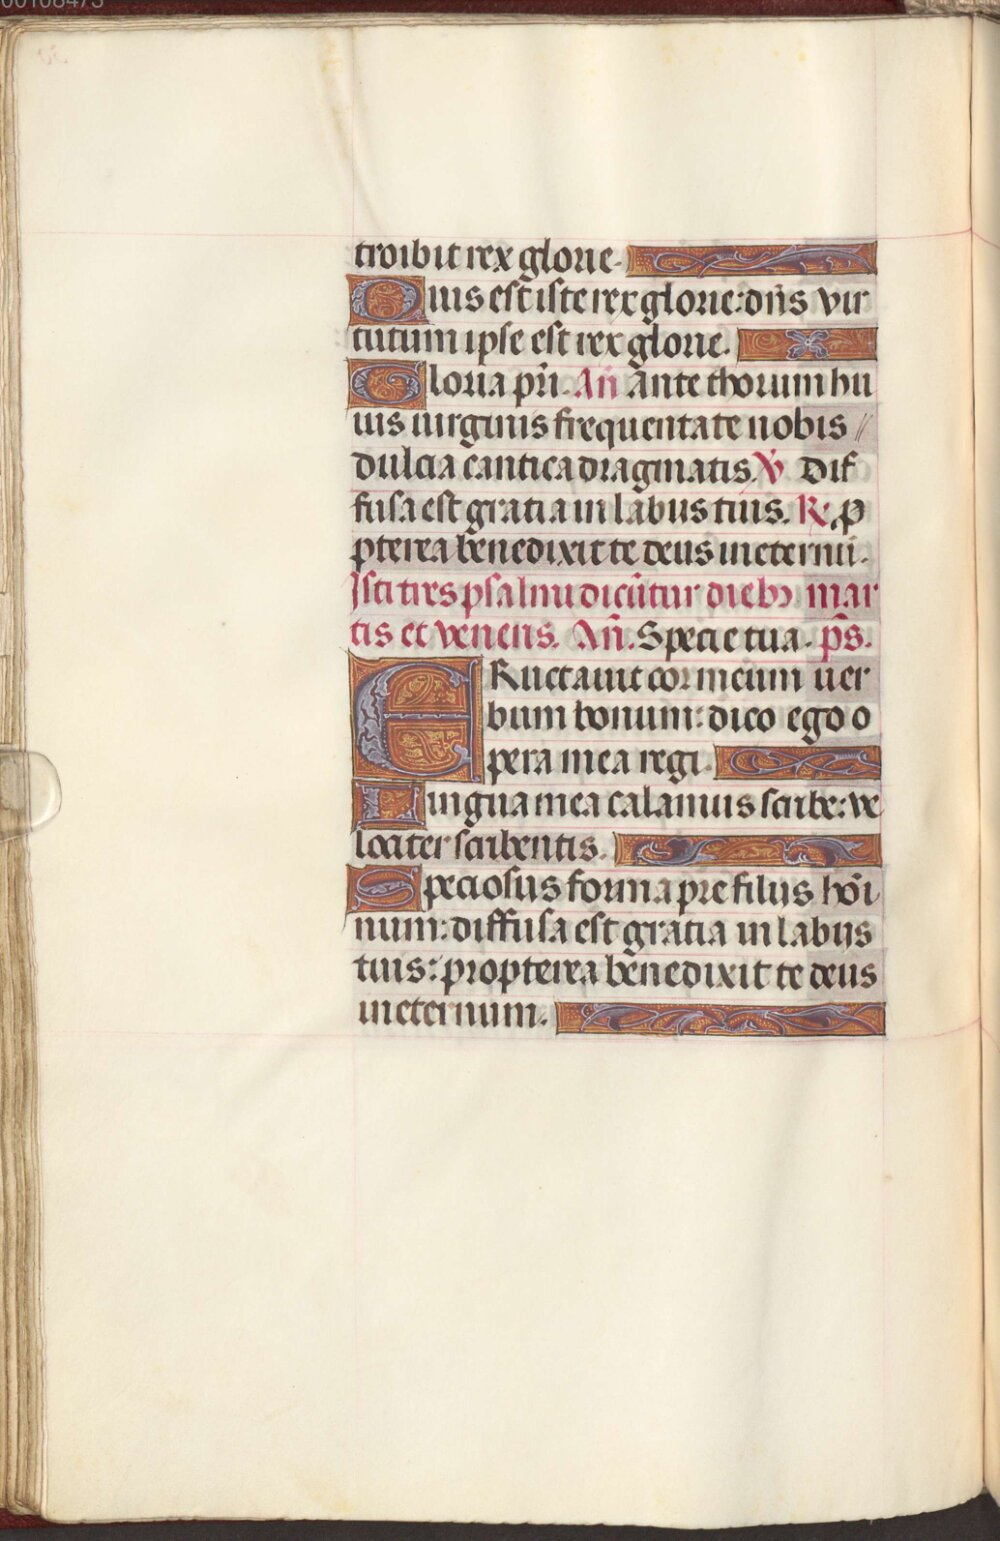 00108473
troibit rex glorie.
Quis est iste rex glorie: dn̄s vir
tutum ipse est rex glorie.
Gloria pr̄i. An̄ ante thorum hu
ius uirginis frequentate nobis //
dulcia cantica dragmatis. ℣ Dif
fusa est gratia in labiis tuis. ℟. ꝓ
pterea benedixit te deus in eternū.
Isti tres psalmi dicūtur dieb⁊ mar
tis et veneris. An̄. Specie tua. ps̄.
ERuctauit cor meum uer
bum bonum: dico ego o
pera mea regi.
Lingua mea calamus scribe: ve
lociter scribentis.
Speciosus forma pre filijs hoī
num: diffusa est gratia in labijs
tuis: propterea benedixit te deus
in eternum.